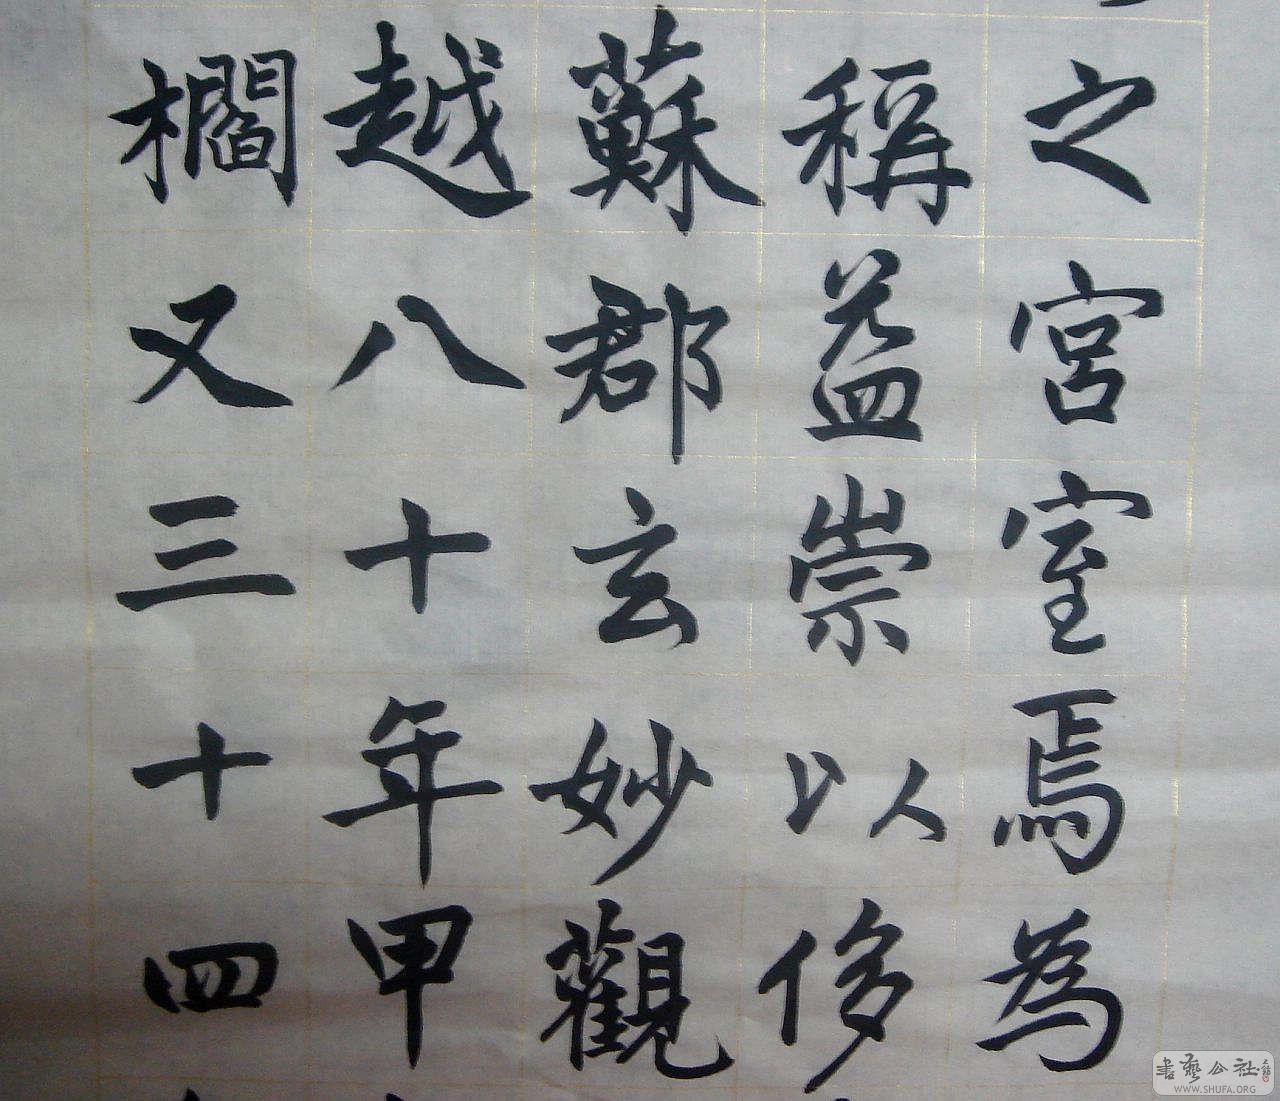 之宮室焉為
稱益崇以侈
蘇郡玄妙觀
越八十年甲
櫚又三十四
書藝公社
WWW.SHUFA.ORG